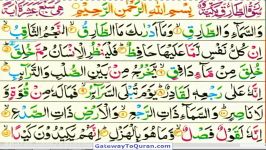 سورة الطارق مكية بسم الله الرحمن الرحيم
وَالسَّمَآءِ وَالطَّارِقِ وَمَآ اَدْرٰىكَ مَا الطَّارِقُ النَّجْمُ الثَّاقِبُ
اِنْ كُلُّ نَفْسٍ لَّمَّا عَلَيْهَا حَافِظٌ فَلْيَنْظُرِ الْاِنْسَانُ مِمَّ خُلِقَ
خُلِقَ مِنْ مَّآءٍ دَافِقٍ يَّخْرُجُ مِنْۢ بَيْنِ الصُّلْبِ وَالتَّرَآئِبِ
اِنَّهٗ عَلٰى رَجْعِهٖ لَقَادِرٌ يَوْمَ تُبْلَى السَّرَآئِرُ فَمَا لَهٗ مِنْ قُوَّةٍ وَّ
لَا نَاصِرٍ وَالسَّمَآءِ ذَاتِ الرَّجْعِ وَالْاَرْضِ ذَاتِ الصَّدْعِ
اِنَّهٗ لَقَوْلٌ فَصْلٌ وَّمَا هُوَ بِالْهَزْلِ اِنَّهُمْ يَكِيْدُوْنَ كَيْدًا
GatewayToQuran.com